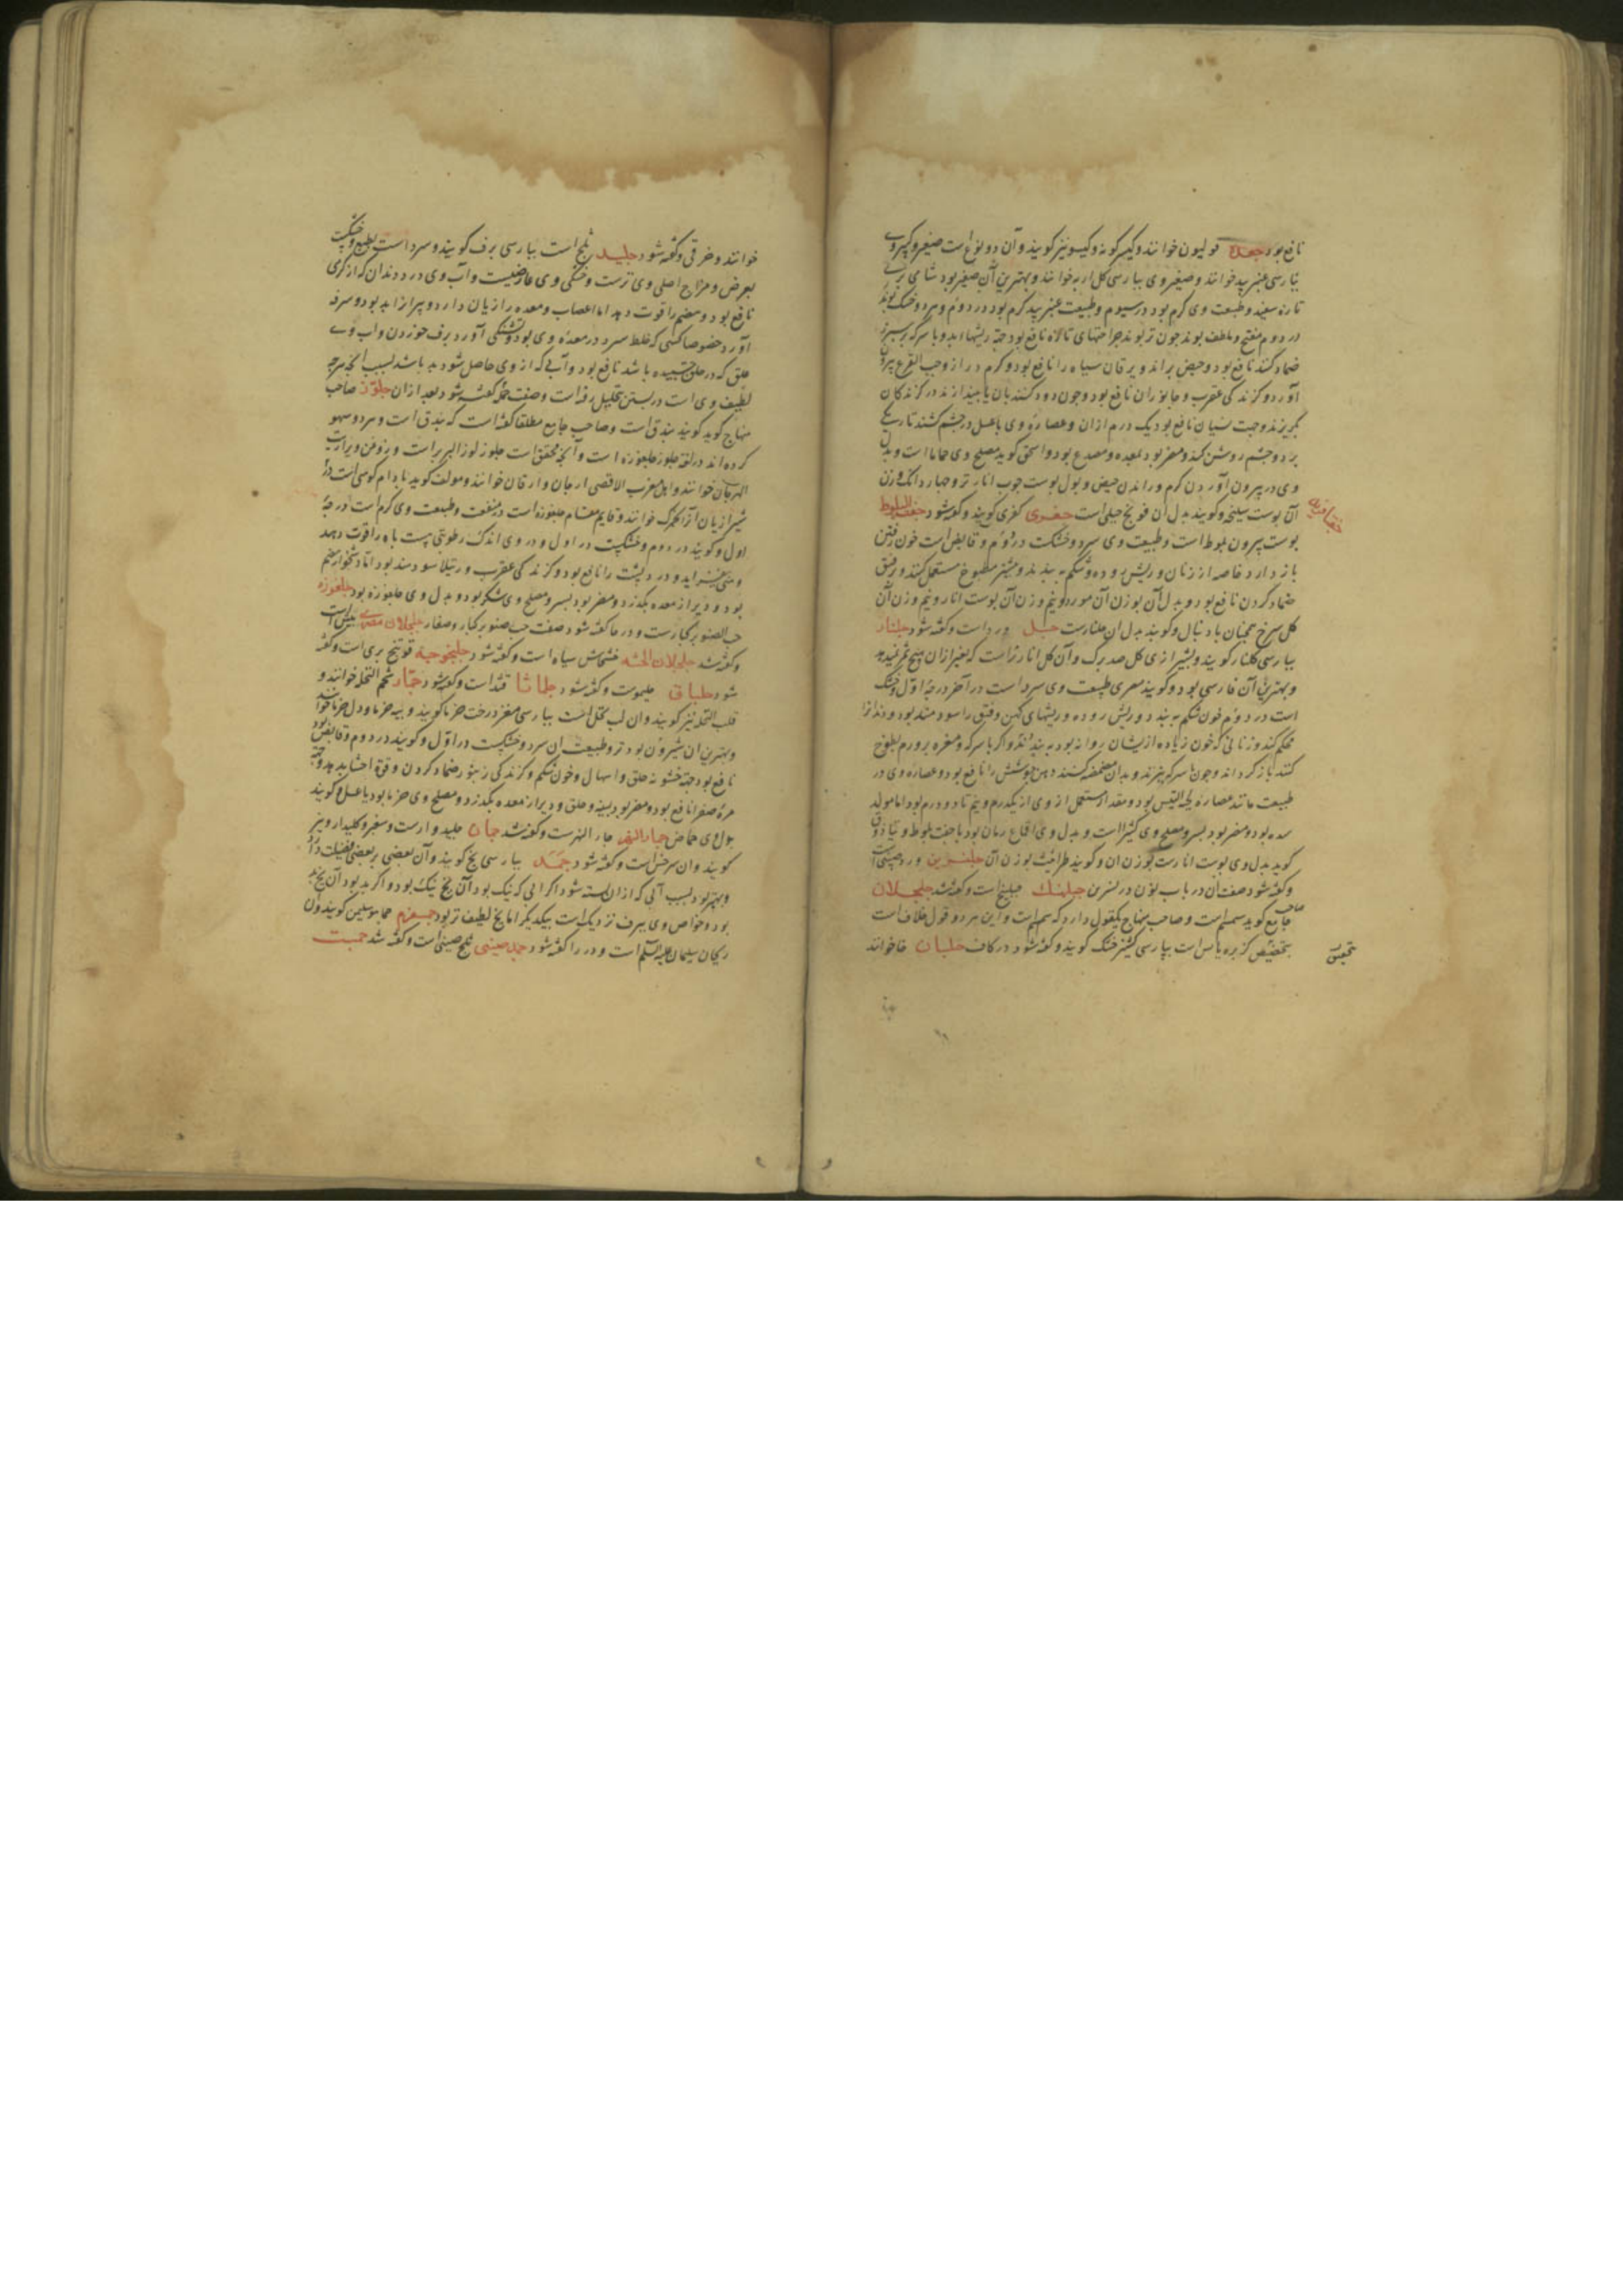 نافع بود جعده فولیون خوانند و کیسر کونه و کیسو نیز کویند و آن دو نوع است صغیر و کبیر وی
بپارسی عنبر بید خوانند و صغیر وی بپارسی کل اربه خوانند و بهترین آن صغیر بود شامی
تازه سفید و طبیعت وی کرم بود در سیوم و طبیعت عنبر بید کرم بود در دوم و هر دو خشک بوند
در دوم مفتح و ملطف بوند چون تر بوند جراحتهای تازه نافع بود جهة ریشهاء بد و با سرکه بر سپرز
ضماد کنند نافع بود و حیض براند و یرقان سیاه را نافع بود و کرم دراز و حب القرع بیرون
آورد و کزندکی عقرب و جانوران نافع بود و چون دود کنند بان یا بیندازند در کزندکان
بکریزند و جهت نسیان نافع بود یک درم از آن و عصاره وی با عسل در چشم کشند تاریکی
برد و چشم روشن کند و مضر بود بمعده و مصدع بود و اسحق کوید مصلح وی حاما است و بدل
وی در بیرون آوردن کرم و راندن حیض و بول پوست چوب انار تر و چهار دانک وزن
آن پوست سلیخه و کویند بدل آن فودنج جبلی است جعفری کفری کویند و کفته شود جفت البلوط
پوست بیرون بلوط است و طبیعت وی سرد و خشکست در دوم و قابض است خون رفتن
باز دارد خاصه از زنان و ریش روده و شکم به بندد و بیشتر مطبوخ مستعمل کنند و بر فتق
ضماد کردن نافع بود و بدل آن بوزن آن مورد و نیم وزن آن پوست انار و نیم وزن آن
کل سرخ همچنان با دنبال و کویند بدل آن جلنارست جل ورد است و کفته شود جلنار
بپارسی کلنار کویند و بشیرازی کل صد برک و آن کل انار نر است که بغیر از آن هیچ ثمر نمیدهد
و بهترین آن فارسی بود و کویند مصری طبیعت وی سرد است در آخر درجهٔ اول و خشک
است در دوم خون شکم به بندد و ریش روده و ریشهای کهن و فتق را سودمند بود و دندانرا
محکم کند و زنانی که خون زیاده از یشان روانه بود به بندد و اکر با سرکه و مغره بر ورم بلغمی طلا
کنند باز کرداند و چون با سرکه بپزند و بدان مضمضه کنند دهن جوشش را نافع بود و عصاره وی در
طبیعت مانند عصاره لحیة التیس بود و مقدار مستعمل از وی از یکدرم و نیم تا دو درم بود اما مولد
سده بود و مضر بود بسر و مصلح وی کثیرا است و بدل وی اقماع رمان بود یا جفت بلوط و تیاذوق
کوید بدل وی پوست انارست بوزن آن و کویند طراثیث بوزن آن جلنسرین ورد صینی است
و کفته شود صفت آن در باب نون در نسرین جلهنک جبلهنج است و کفته شد جلجلان
صاحب جامع کوید سمسم است و صاحب منهاج یکقول دارد که سمسم است و این هر دو قول خلاف است
بتحقیق کزبره یابس است بپارسی کشنیز خشک کویند و کفته شود در کاف جلبان خا خوانند
خوانند و خرقی و کفته شود جلید ثلج است بپارسی برف کویند و سرد است بطبع و خشکست
بعرض و مزاج اصلی وی ترست و خشکی وی عارضیست و آب وی درد دندان که از کرمی
نافع بود و هضم را قوت دهد اما اعصاب و معده را زیان دارد و پیرانرا بد بود و سرفه
آورد خصوصا کسی که خلط سرد در معده وی بود و تشنکی آورد برف خوردن و آب وی
علق که در حلق چسبیده باشد نافع بود و آبی که از وی حاصل شود بد باشد بسبب آنکه هرچه
لطیف وی است در بستن بتحلیل رفته است و صفت جمد کفته شود بعد از آن جلوز صاحب
منهاج کوید کویند بندق است و صاحب جامع مطلقا کفته است که بندق است و هر دو سهو
کرده اند در لغة جلوز جلغوزه است و آنچه محقق است جلوز لوز البر است و روغن ویرا زیت
الهرجان خوانند و اهل مغرب الاقصی ارجان وارقان خوانند و مولف کوید بادام کوهی است و
شیرازیان آنرا کلمرک خوانند و قایم مقام جلغوزه است در منفعت و طبیعت وی کرم است در درجهٔ
اول و کویند در دوم و خشکست در اول و در وی اندک رطوبتی هست باه را قوت دهد
و منی بیفزاید و درد پشت را نافع بود و کزندکی عقرب و رتیلا سودمند بود اما دشخوار هضم
بود و دیر از معده بکذرد و مضر بود بسر و مصلح وی شکر بود و بدل وی جلغوزه بود جلغوزه
حب الصنوبر کبارست و در حا کفته شود صفت حب صنوبر کبار و صغار جلجلان مصری بیش است
و کفته شد جلجلان الحبشه خشخاش سیاه است و کفته شود جلنجوجه فوتنج بری است و کفته
شود جلباق جلبهوت و کفته شود جلماثا قثد است و کفته شود جمار شحم النخله خوانند و
قلب النخله نیز کویند و آن لب نخل است بپارسی مغز درخت خرما کویند و پیه خرما و دل خرما خوانند
و بهترین آن شیرین بود تر و طبیعت آن سرد و خشکست در اول و کویند در دوم و قابض بود
نافع بود جهة خشونة حلق و اسهال و خون شکم و کزندکی زنبور ضماد کردن و قوة احشا بدهد و جهة
مرة صفرا نافع بود و مضر بود بسینه و حلق و دیر از معده بکذرد و مصلح وی خرما بود یا عسل و کویند
بدل وی حماض جار النهر جار النهرست و کفته شد جمان جلیدوارست و سفیر و کلیدارو نیز
کویند و آن سرخس است و کفته شود جمد بپارسی یخ کویند و آن بعضی بر بعضی فضیلت دارد
و بهتر بود بسبب آبی که از آن بسته شود اکر آبی که نیک بود آن یخ نیک بود و اکر بد بود آن یخ بد
بود و خواص وی ببرف نزدیک است بیکدیکر اما یخ لطیف تر بود جمسفرم حماسومسلیمن کویند و آن
ریحان سلیمان علیه السلم است و در را کفته شود جمد صینی ثلج صینی است و کفته شد جمبست